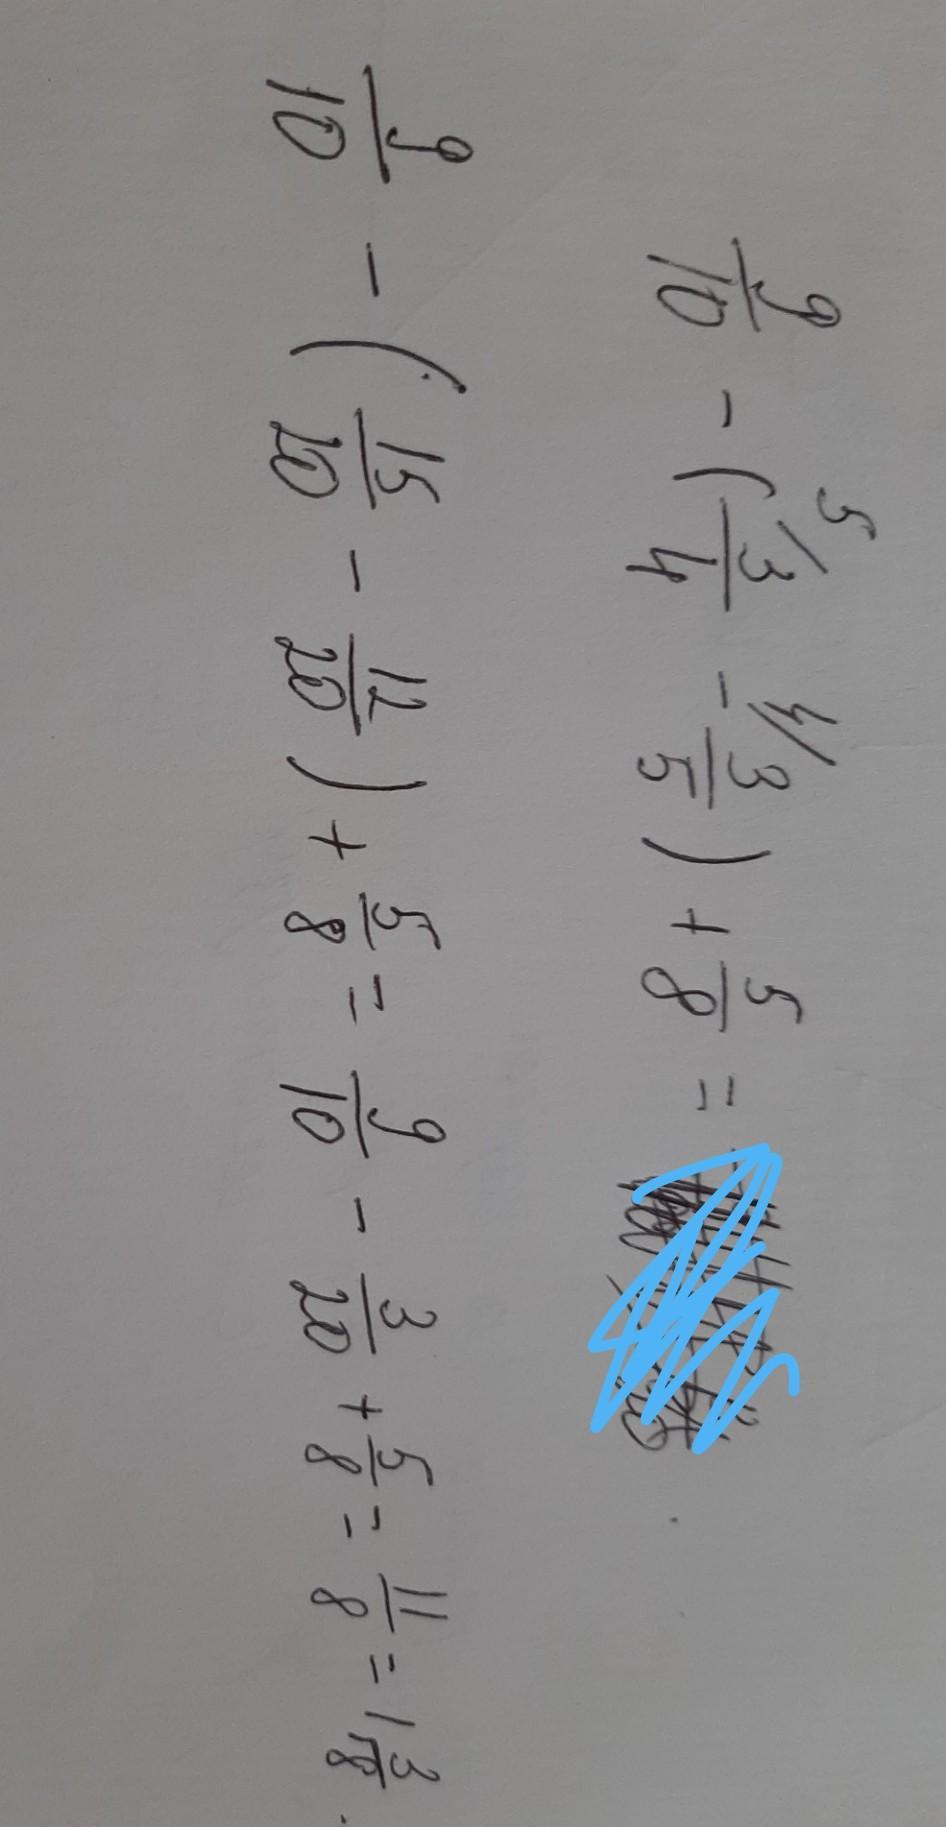 9/10 - (⁵⁄3/4 - ⁴⁄3/5) + 5/8 =
9/10 - (15/20 - 12/20) + 5/8 = 9/10 - 3/20 + 5/8 = 11/8 = 1 3/8.